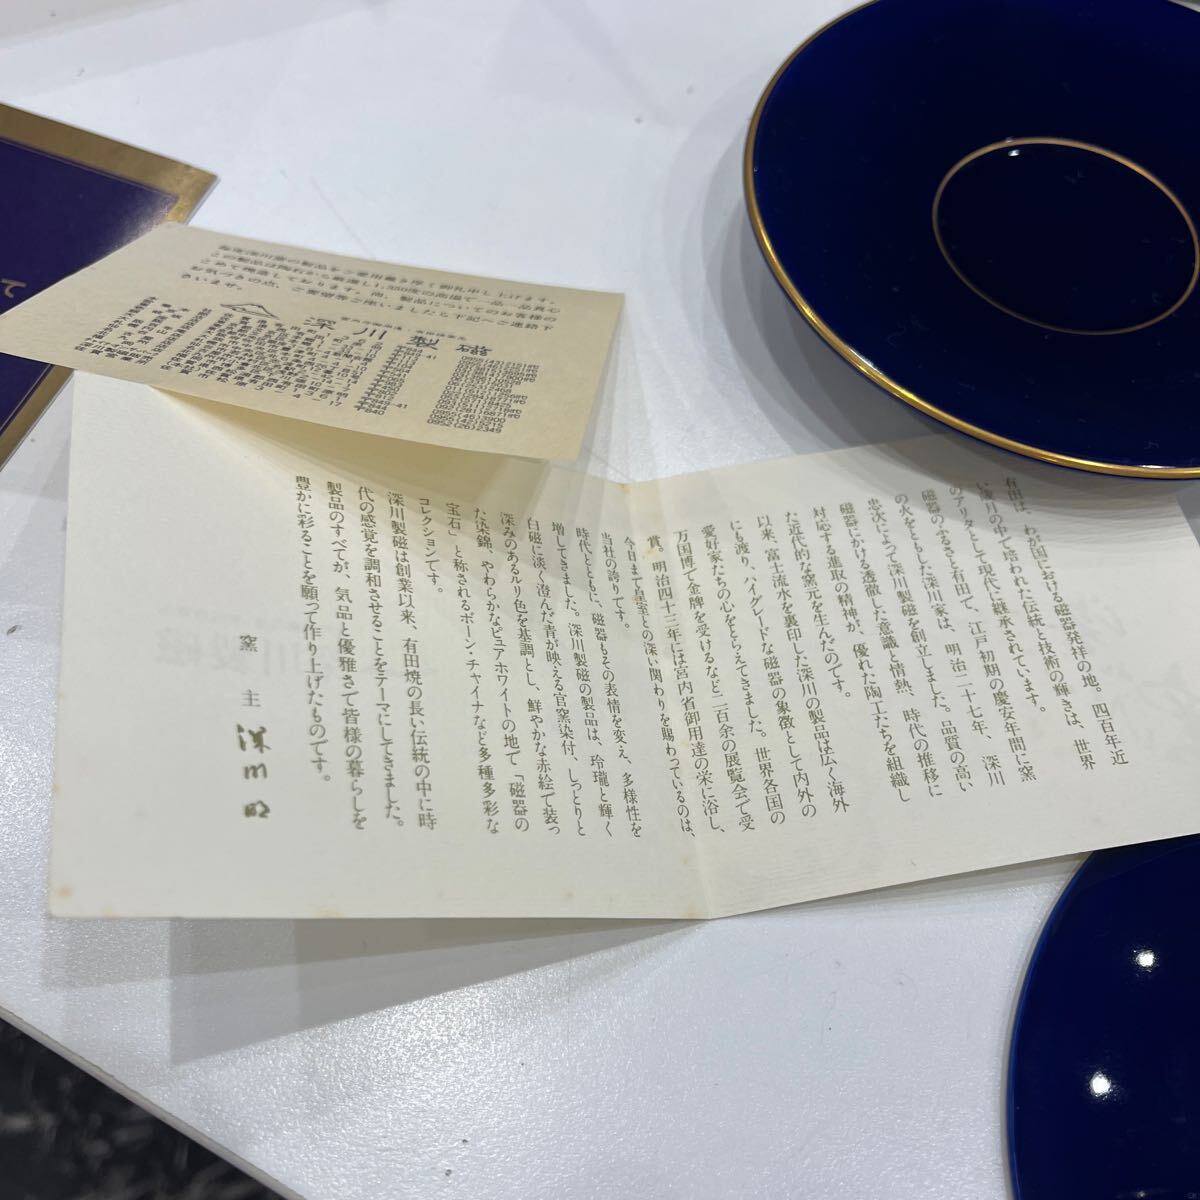 有田は、わが国における磁器発祥の地。四百年近
い歳月の中で培われた伝統と技術の輝きは、世界
のアリタとして現代に継承されています。
磁器のふるさと有田で、江戸初期の慶安年間に窯
の火をともした深川家は、明治二十七年、深川
忠次によって深川製磁を創立しました。品質の高い
磁器にかける透徹した意識と情熱、時代の推移に
対応する進取の精神が、優れた陶工たちを組織し
た近代的な窯元を生んだのです。
以来、富士流水を裏印した深川の製品は広く海外
にも渡り、ハイグレードな磁器の象徴として内外の
愛好家たちの心をとらえてきました。世界各国の
万国博で金牌を受けるなど二百余の展覧会で受
賞。明治四十三年には宮内省御用達の栄に浴し、
今日まで皇室との深い関わりを賜わっているのは、
当社の誇りです。
時代とともに、磁器もその表情を変え、多様性を
増してきました。深川製磁の製品は、玲瓏と輝く
白磁に淡く澄んだ青が映える官窯染付、しっとりと
深みのあるルリ色を基調とし、鮮やかな赤絵で装っ
た染錦、やわらかなピュアホワイトの地で「磁器の
宝石」と称されるボーン・チャイナなど多種多彩な
コレクションです。
深川製磁は創業以来、有田焼の長い伝統の中に時
代の感覚を調和させることをテーマにしてきました。
製品のすべてが、気品と優雅さで皆様の暮らしを
豊かに彩ることを願って作り上げたものです。
窯主 深川明
毎度深川窯の製品をご愛用戴き厚く御礼申し上げます。
この製品は陶石から厳選し1,350度の高温で一品一品真心
こめて焼造しております。尚、製品についてのお客様の
お気づきの点、ご要望等ございましたら下記へご連絡下
さいませ。
深川製磁
て